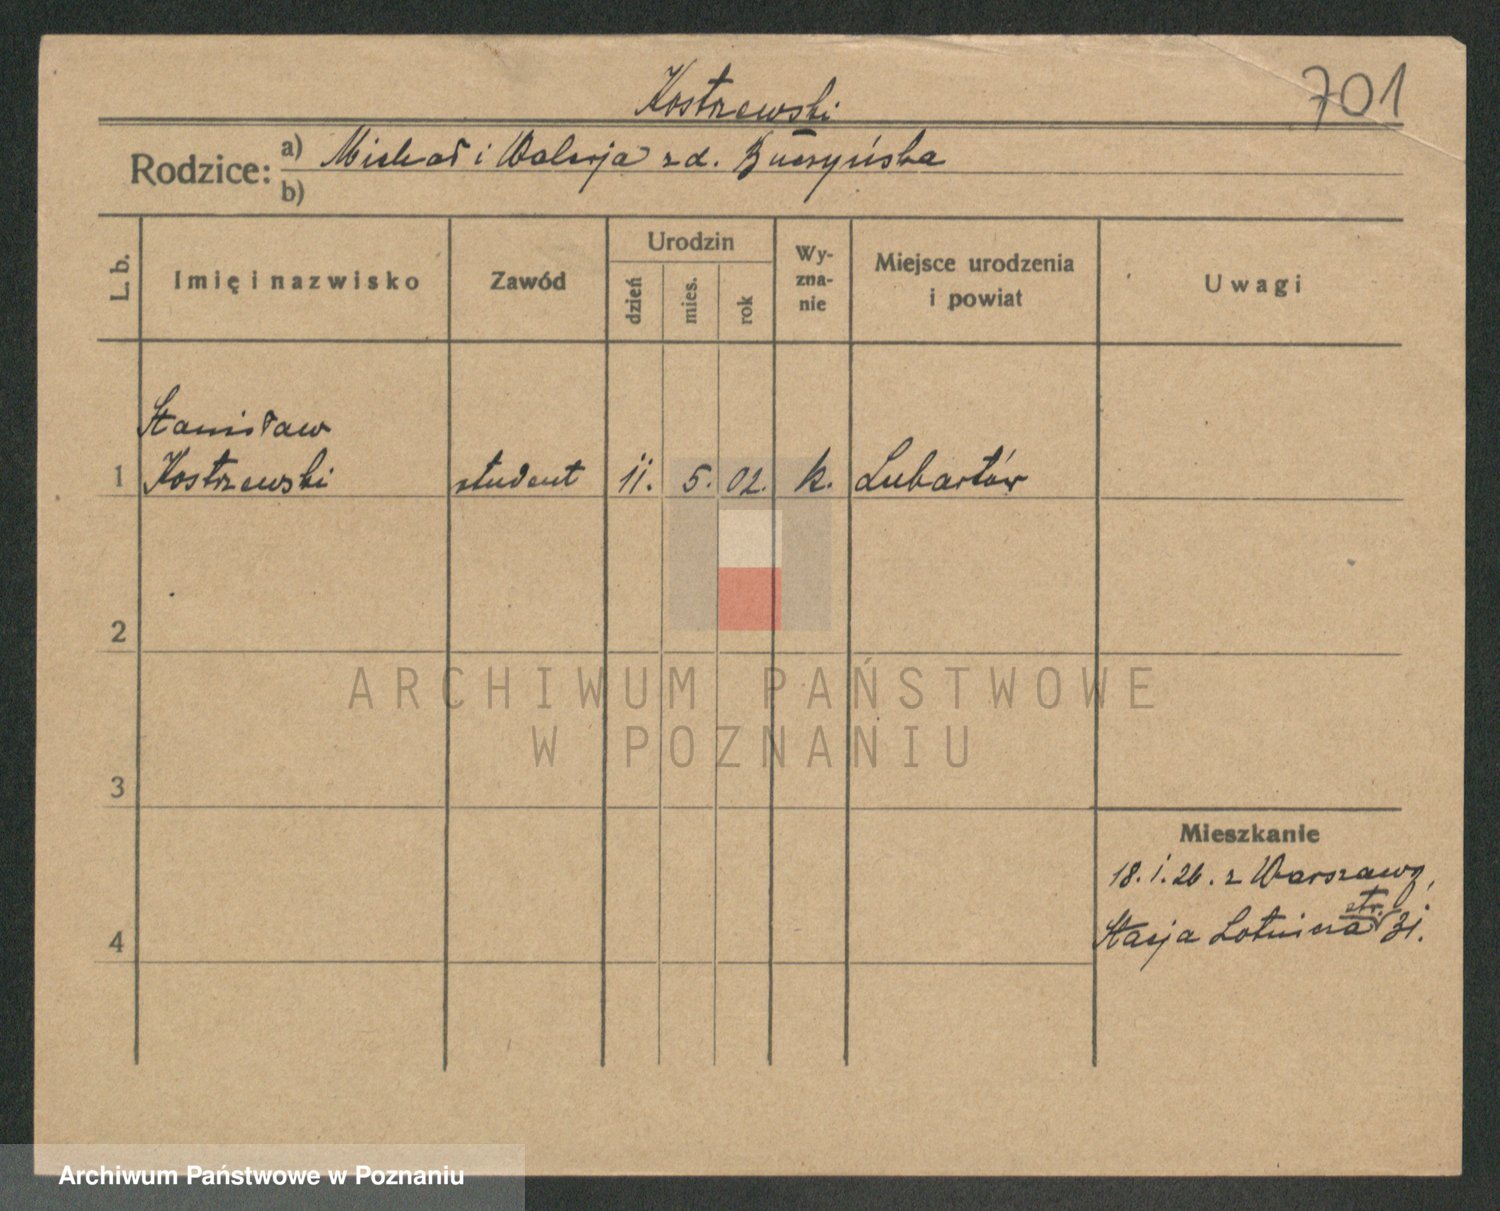 Kostrzewski
701
Rodzice: a) Michał i Walerja zd. Buczyńska
b)
L. b.
Imię i nazwisko
Zawód
Urodzin
dzień
mies.
rok
Wy-
zna-
nie
Miejsce urodzenia
i powiat
Uwagi
Stanisław
1 Kostrzewski student 11. 5. 02. k. Lubartów
2
ARCHIWUM PAŃSTWOWE
W POZNANIU
3
Mieszkanie
18. 1. 26. z Warszawy,
str.
4
Stacja Lotnicza 31.
Archiwum Państwowe w Poznaniu